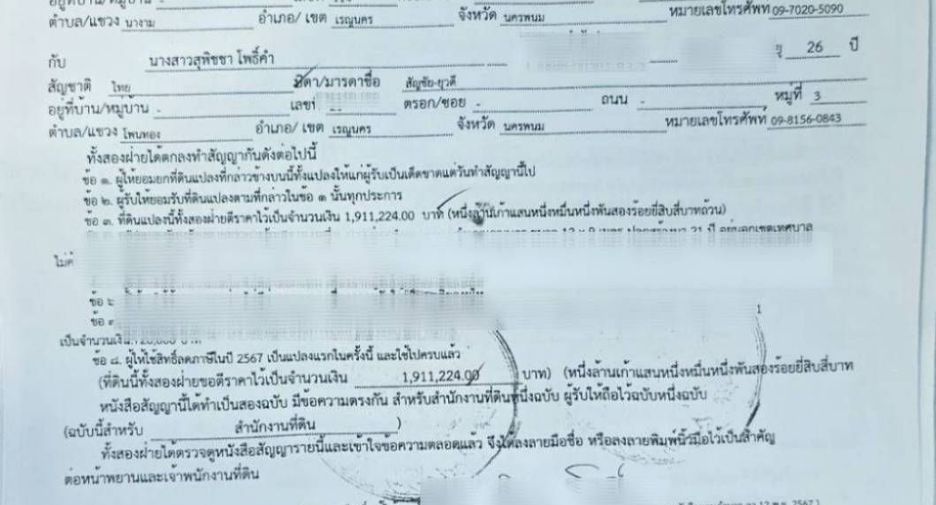 ตำบล/แขวง นางาม อำเภอ/ เขต เรณูนคร จังหวัด นครพนม หมายเลขโทรศัพท์ 09-7020-5090
กับ นางสาวสุพิชชา โพธิ์คำ 26 ปี
สัญชาติ ไทย บิดา/มารดาชื่อ สัญชัย-ยุวดี
อยู่ที่บ้าน/หมู่บ้าน - เลขที่ ตรอก/ซอย - ถนน - หมู่ที่ 3
ตำบล/แขวง โพนทอง อำเภอ/ เขต เรณูนคร จังหวัด นครพนม หมายเลขโทรศัพท์ 09-8156-0843
ทั้งสองฝ่ายได้ตกลงทำสัญญากันดังต่อไปนี้
ข้อ ๑. ผู้ให้ยอมยกที่ดินแปลงที่กล่าวข้างบนนี้ทั้งแปลงให้แก่ผู้รับเป็นเด็ดขาดแต่วันทำสัญญานี้ไป
ข้อ ๒. ผู้รับให้ยอมรับที่ดินแปลงตามที่กล่าวในข้อ ๑ นั้นทุกประการ
ข้อ ๓. ที่ดินแปลงนี้ทั้งสองฝ่ายตีราคาไว้เป็นจำนวนเงิน 1,911,224.00 บาท (หนึ่งล้านเก้าแสนหนึ่งหมื่นหนึ่งพันสองร้อยยี่สิบสี่บาทถ้วน)
21 ปี อยู่นอกเขตเทศบาล
ไม่
ข้อ
ข้อ
เป็นจำนวนเงิน
ข้อ ๘. ผู้ให้ใช้สิทธิ์ลดภาษีในปี 2567 เป็นแปลงแรกในครั้งนี้ และใช้ไปครบแล้ว
(ที่ดินนี้ทั้งสองฝ่ายขอตีราคาไว้เป็นจำนวนเงิน 1,911,224.00 บาท) (หนึ่งล้านเก้าแสนหนึ่งหมื่นหนึ่งพันสองร้อยยี่สิบสี่บาท
หนังสือสัญญานี้ได้ทำเป็นสองฉบับ มีข้อความตรงกัน สำหรับสำนักงานที่ดินหนึ่งฉบับ ผู้รับให้ถือไว้ฉบับหนึ่งฉบับ
(ฉบับนี้สำหรับ สำนักงานที่ดิน )
ทั้งสองฝ่ายได้ตรวจดูหนังสือสัญญารายนี้และเข้าใจข้อความตลอดแล้ว จึงได้ลงลายมือชื่อ หรือลงลายพิมพ์นิ้วมือไว้เป็นสำคัญ
ต่อหน้าพยานและเจ้าพนักงานที่ดิน